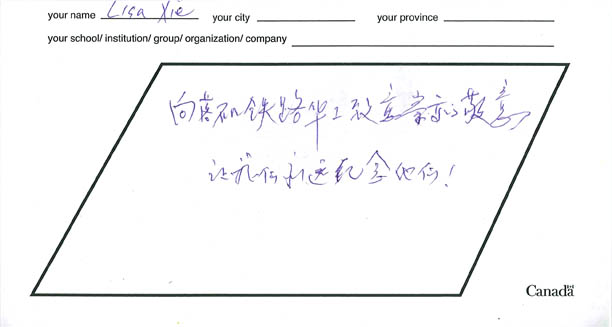 your name Lisa Xie your city your province
your school/ institution/ group/ organization/ company
向铁路华工致崇高的敬意
让我们永远纪念他们!
Canada